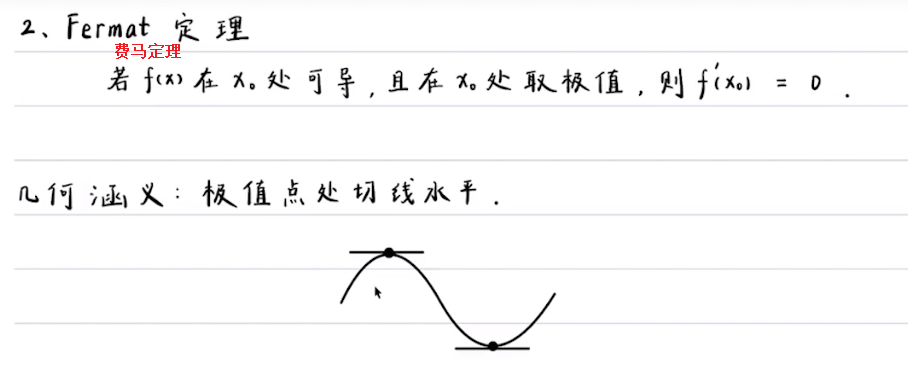 2、Fermat 定理
费马定理
若 f(x) 在 x₀ 处可导,且在 x₀ 处取极值,则 f'(x₀) = 0 .
几何涵义:极值点处切线水平.